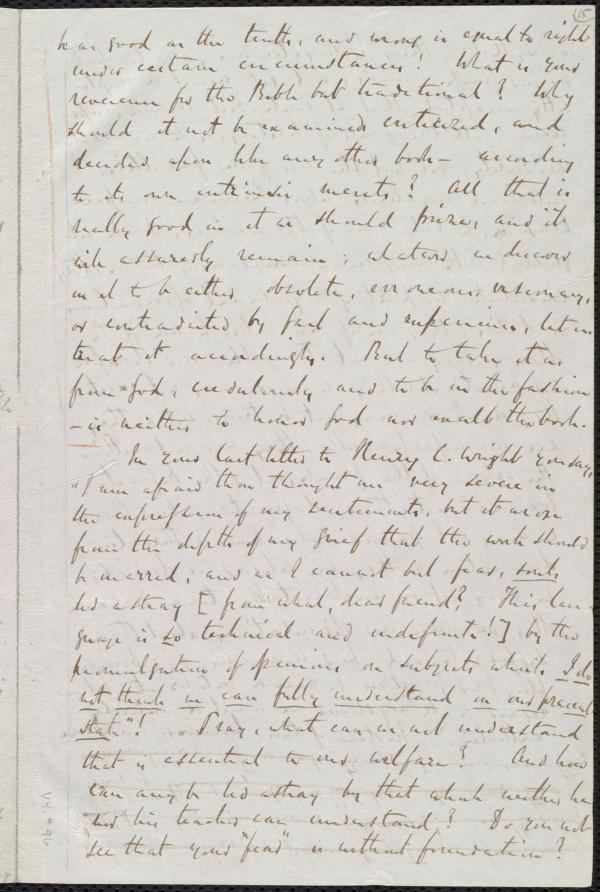 15
be as good as the truth, and wrong is equal to right
under certain circumstances! What is your
reverence for the Bible but traditional? Why
should it not be examined, criticized, and
decided upon like any other book — according
to its own intrinsic merits? All that is
really good in it we should prize, and it
will assuredly remain; whatever we discover
in it to be either obsolete, erroneous, visionary,
or contradicted by fact and experience, let us
treat it accordingly. But to take it as
from God, credulously and to be in the fashion
— is neither to honor God nor exalt the book.
In your last letter to Henry C. Wright you say,
"I am afraid thou thought me very severe in
the expression of my sentiments, but it arose
from the depth of my grief that the work should
be marred, and as I cannot but fear, souls
led astray [from what, dear friend? This lan-
guage is so technical and indefinite!] by the
promulgation of opinions on subjects which I do
not think we can fully understand in our present
state"! Pray, what can we not understand
that is essential to our welfare? And how
can any be led astray by that which neither he
nor his teacher can understand? Do you not
see that your "fear" is without foundation?